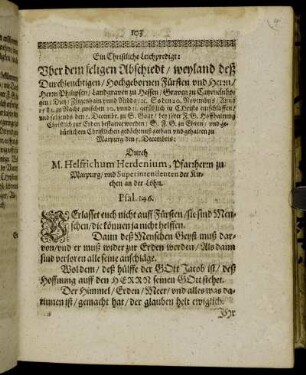 103
Ein Christliche Leichpredigt:
Vber dem seligen Abschiedt / weyland deß
Durchleuchtigen / Hochgebornen Fürsten vnd Herrn /
Herrn Philipsen / Landgraven zu Hessen / Graven zu Catzenelnbo-
gen / Dietz / Ziegenhain vnd Nidda / etc. So den 20. Novembris / Anno
83. zu Nacht zwischen 10. vnd 11. seliglich in Christo entschlaffen /
vnd folgends den 2. Decemb. zu S. Goar /
Christlich zur Erden bestattet worden: S. F. G. zu Ehren / vnd
Christlichen gedächtnuß gethan vnd gehalten zu
Marpurg den 5. Decembris:
Durch
M. Helfrichum Herdenium, Pfarrherrn zu
Marpurg / vnd Superintendenten der Kir-
chen an der Löhn.
Psal. 146.
VErlasset euch nicht auff Fürsten / sie sind Men-
schen / die können ja nicht helffen.
Dann deß Menschen Geyst muß dar-
von / vnd er muß wider zur Erden werden / Als dann
sind verloren alle seine anschläge.
Wol dem / deß hülffe der GOtt Jacob ist / deß
Hoffnung auff den HERRN seinen GOtt stehet.
Der Himmel / Erden / Meer / vnd alles was da-
rinnen ist / gemacht hat / der glauben helt ewiglich.